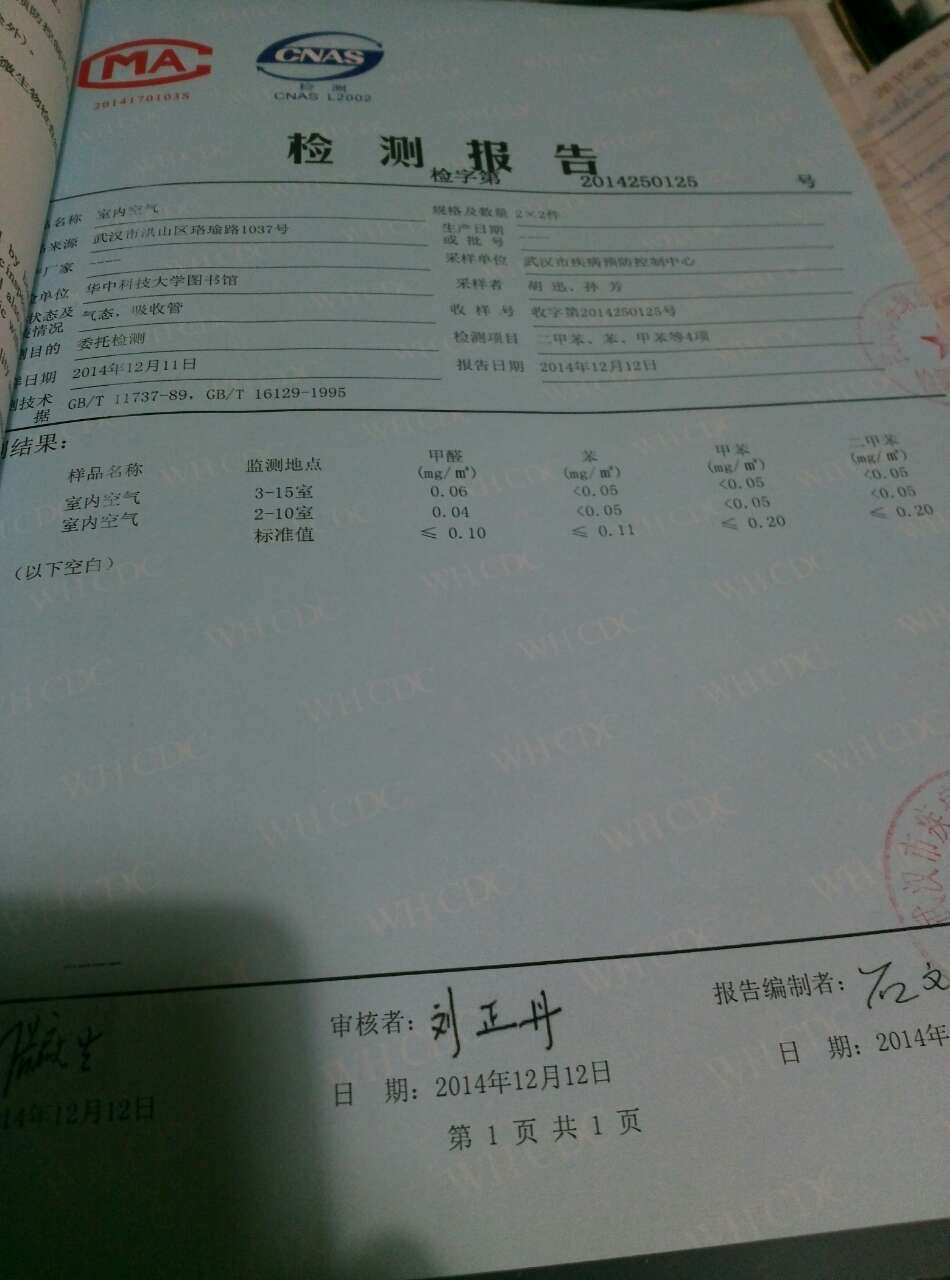 MA
2014170103S
CNAS
检 测
CNAS L2002
检 测 报 告
检字第 2014250125 号
名称 室内空气 规格及数量 2×2件
来源 武汉市洪山区珞瑜路1037号 生产日期或批号 ----
厂家 ---- 采样单位 武汉市疾病预防控制中心
单位 华中科技大学图书馆 采样者 胡迅、孙芳
状态及情况 气态，吸收管 收样号 收字第2014250125号
目的 委托检测 检测项目 二甲苯、苯、甲苯等4项
日期 2014年12月11日 报告日期 2014年12月12日
技术据 GB/T 11737-89, GB/T 16129-1995
结果：
样品名称 监测地点 甲醛(mg/㎥) 苯(mg/㎥) 甲苯(mg/㎥) 二甲苯(mg/㎥)
室内空气 3-15室 0.06 <0.05 <0.05 <0.05
室内空气 2-10室 0.04 <0.05 <0.05 <0.05
标准值 ≤ 0.10 ≤ 0.11 ≤ 0.20 ≤ 0.20
(以下空白)
WHCDC
武汉市疾
审核者：刘正丹 报告编制者：石文
14年12月12日 日 期：2014年12月12日 日 期：2014年
第 1 页 共 1 页